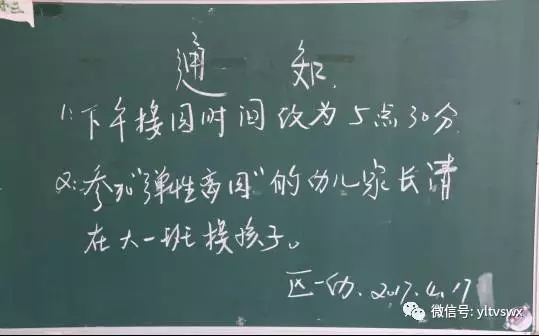 通 知
1:下午接园时间改为5点30分
2:参加“弹性离园”的幼儿家长请
在大一班接孩子。
区一幼.2017.4.17
微信号: yltvswx